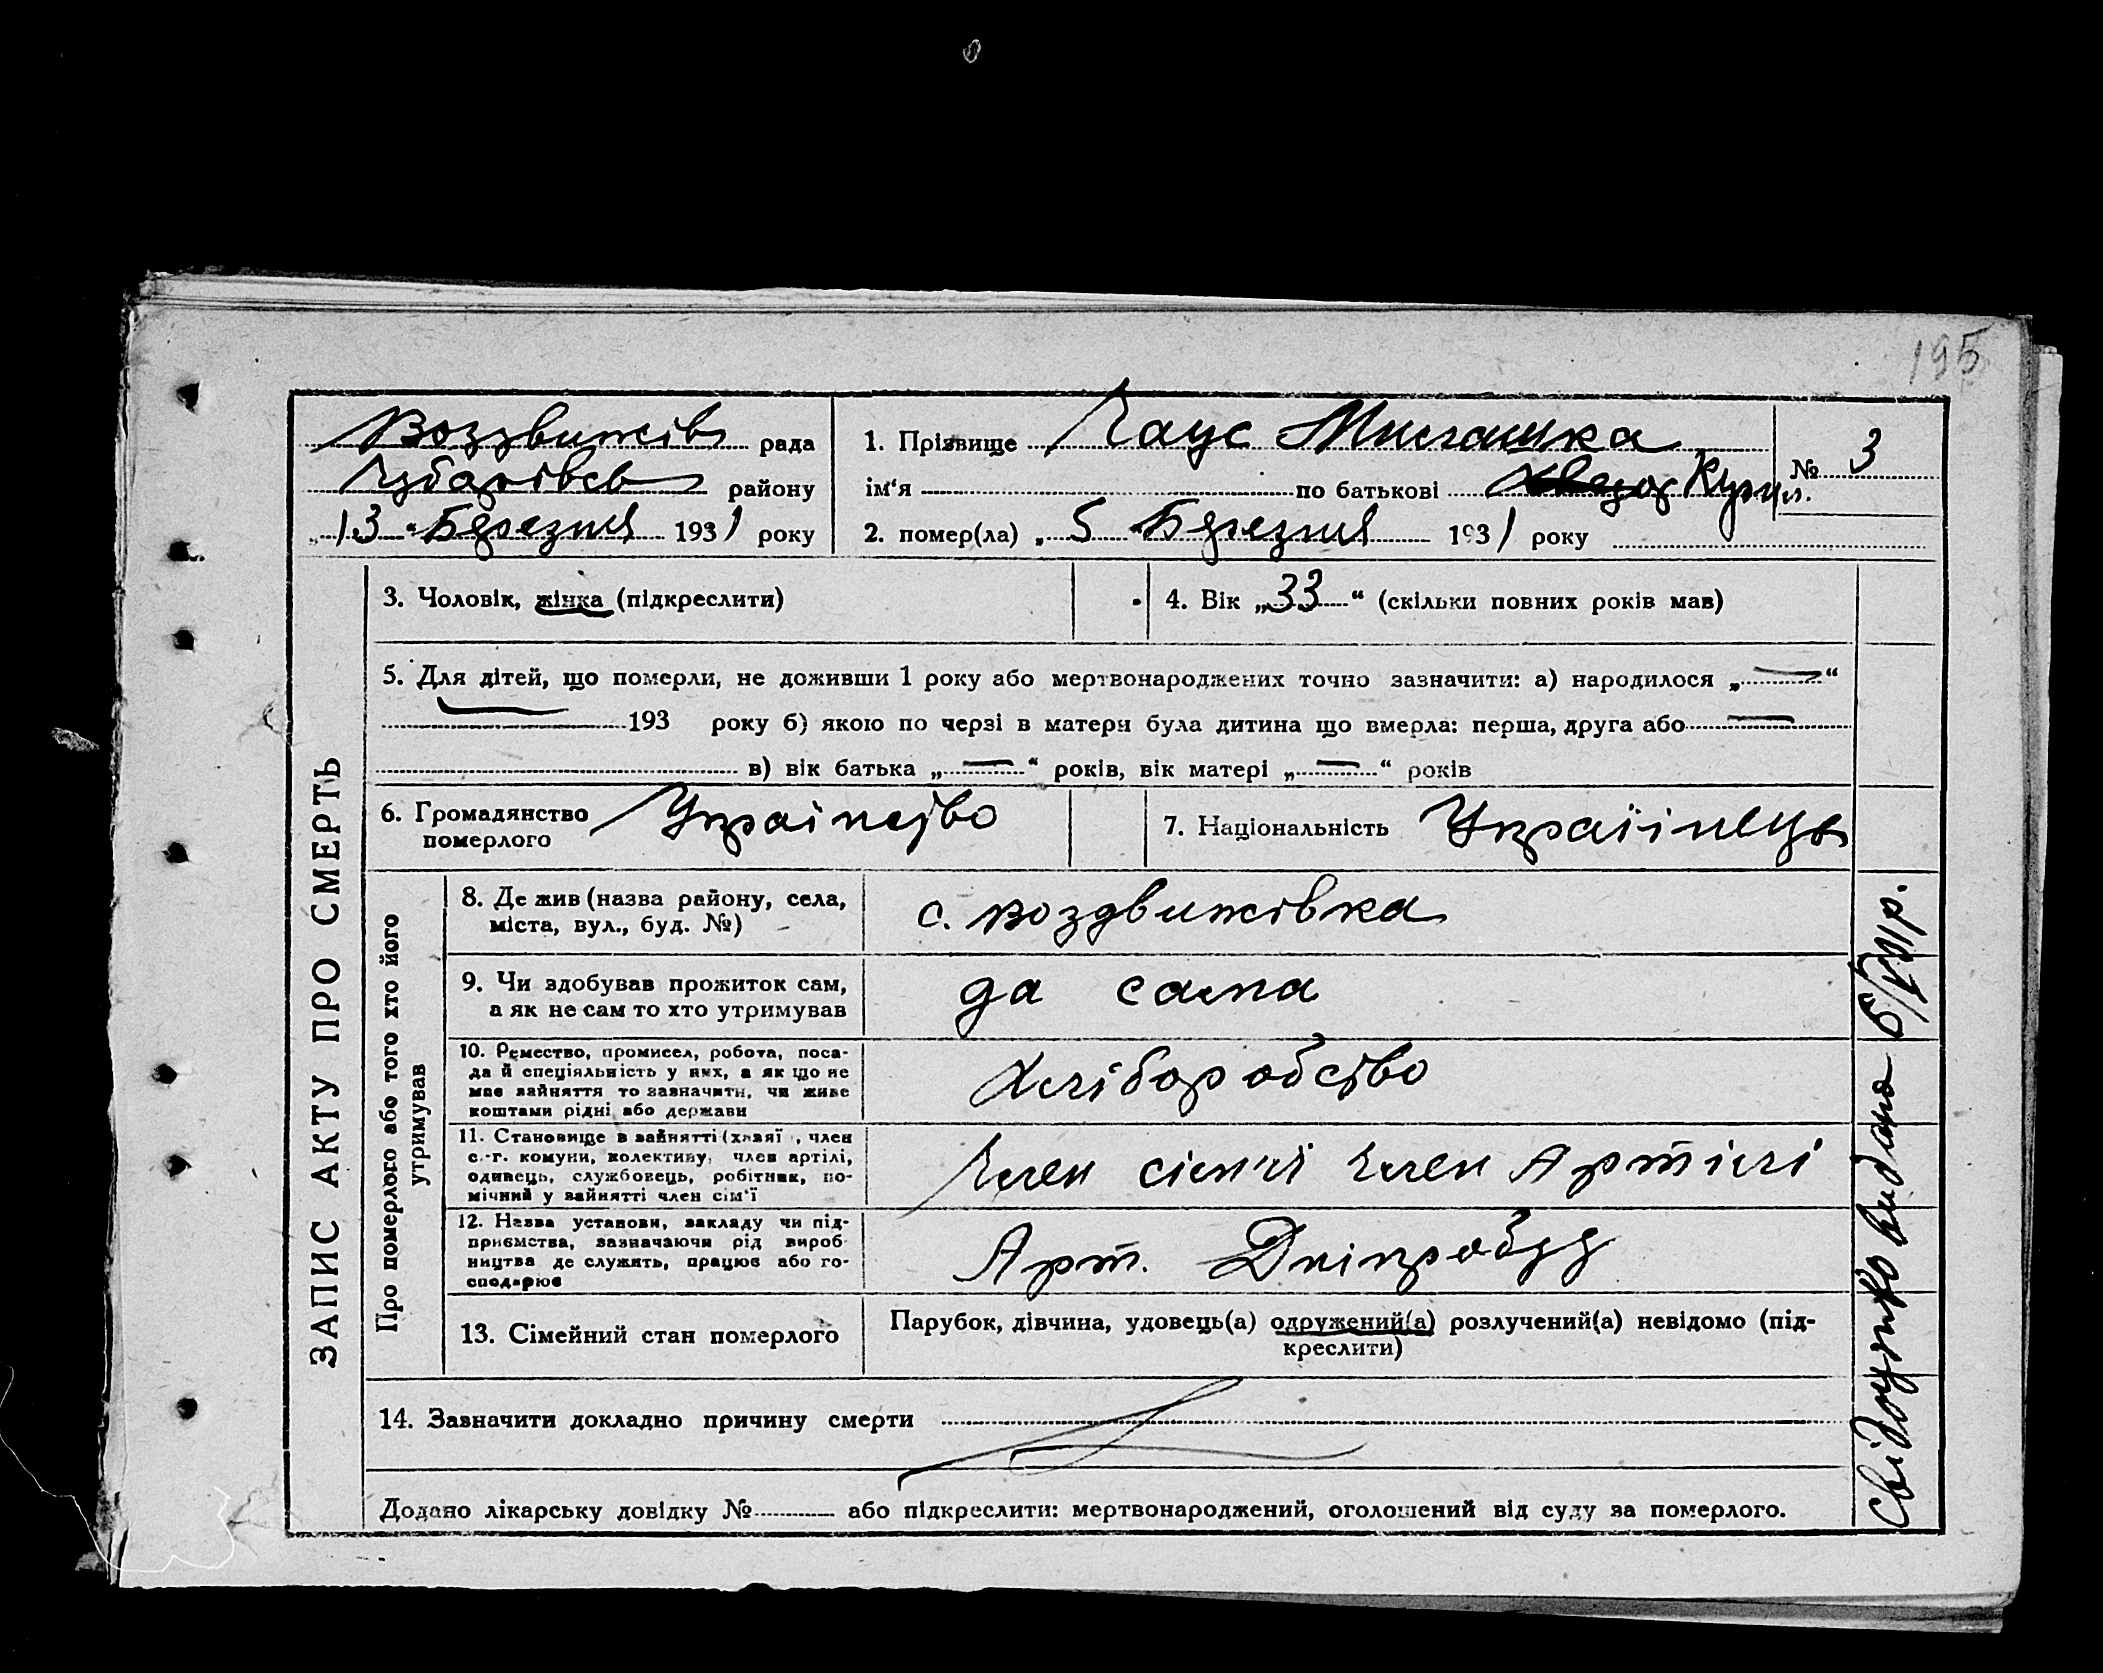 195
Воздвижів рада
Чубарівсь району
„13" Березня 1931 року
1. Прізвище Чаус Милашка
ім‘я по батькові Хведор Кузм.
№ 3
2. помер(ла) „5" Березня 1931 року
ЗАПИС АКТУ ПРО СМЕРТЬ
3. Чоловік, жінка (підкреслити)
4. Вік „33“ (скільки повних років мав)
5. Для дітей, що померли, не доживши 1 року або мертвонароджених точно зазначити: а) народилося „—“
— 193 року б) якою по черзі в матери була дитина що вмерла: перша, друга або —
в) вік батька „—“ років, вік матері „—“ років
6. Громадянство
померлого
Українство
7. Національність Українець
Про померлого або того хто його
утримував
8. Де жив (назва району, села,
міста, вул., буд. №)
с. Воздвижівка
9. Чи здобував прожиток сам,
а як не сам то хто утримував
да сама
10. Ремество, промисел, робота, поса-
да й спеціяльність у них, а як що не
мав зайняття то зазначити, чи живе
коштами рідні або держави
Хліборобство
11. Становище в зайнятті (хазяї , член
с.-г. комуни, колективу, член артілі,
одинець, службовець, робітник, по-
мічний у зайнятті член сім‘ї
Член сімї член Артілі
12. Назва установи, закладу чи під-
приємства, зазначаючи рід вироб-
ництва де служить, працює або го-
сподарює
Арт. Дніпробуд
13. Сімейний стан померлого
Парубок, дівчина, удовець(а) одружений(а) розлучений(а) невідомо (під-
креслити)
14. Зазначити докладно причину смерти
Додано лікарську довідку № або підкреслити: мертвонароджений, оголошений від суду за померлого.
Свідоцтво видано